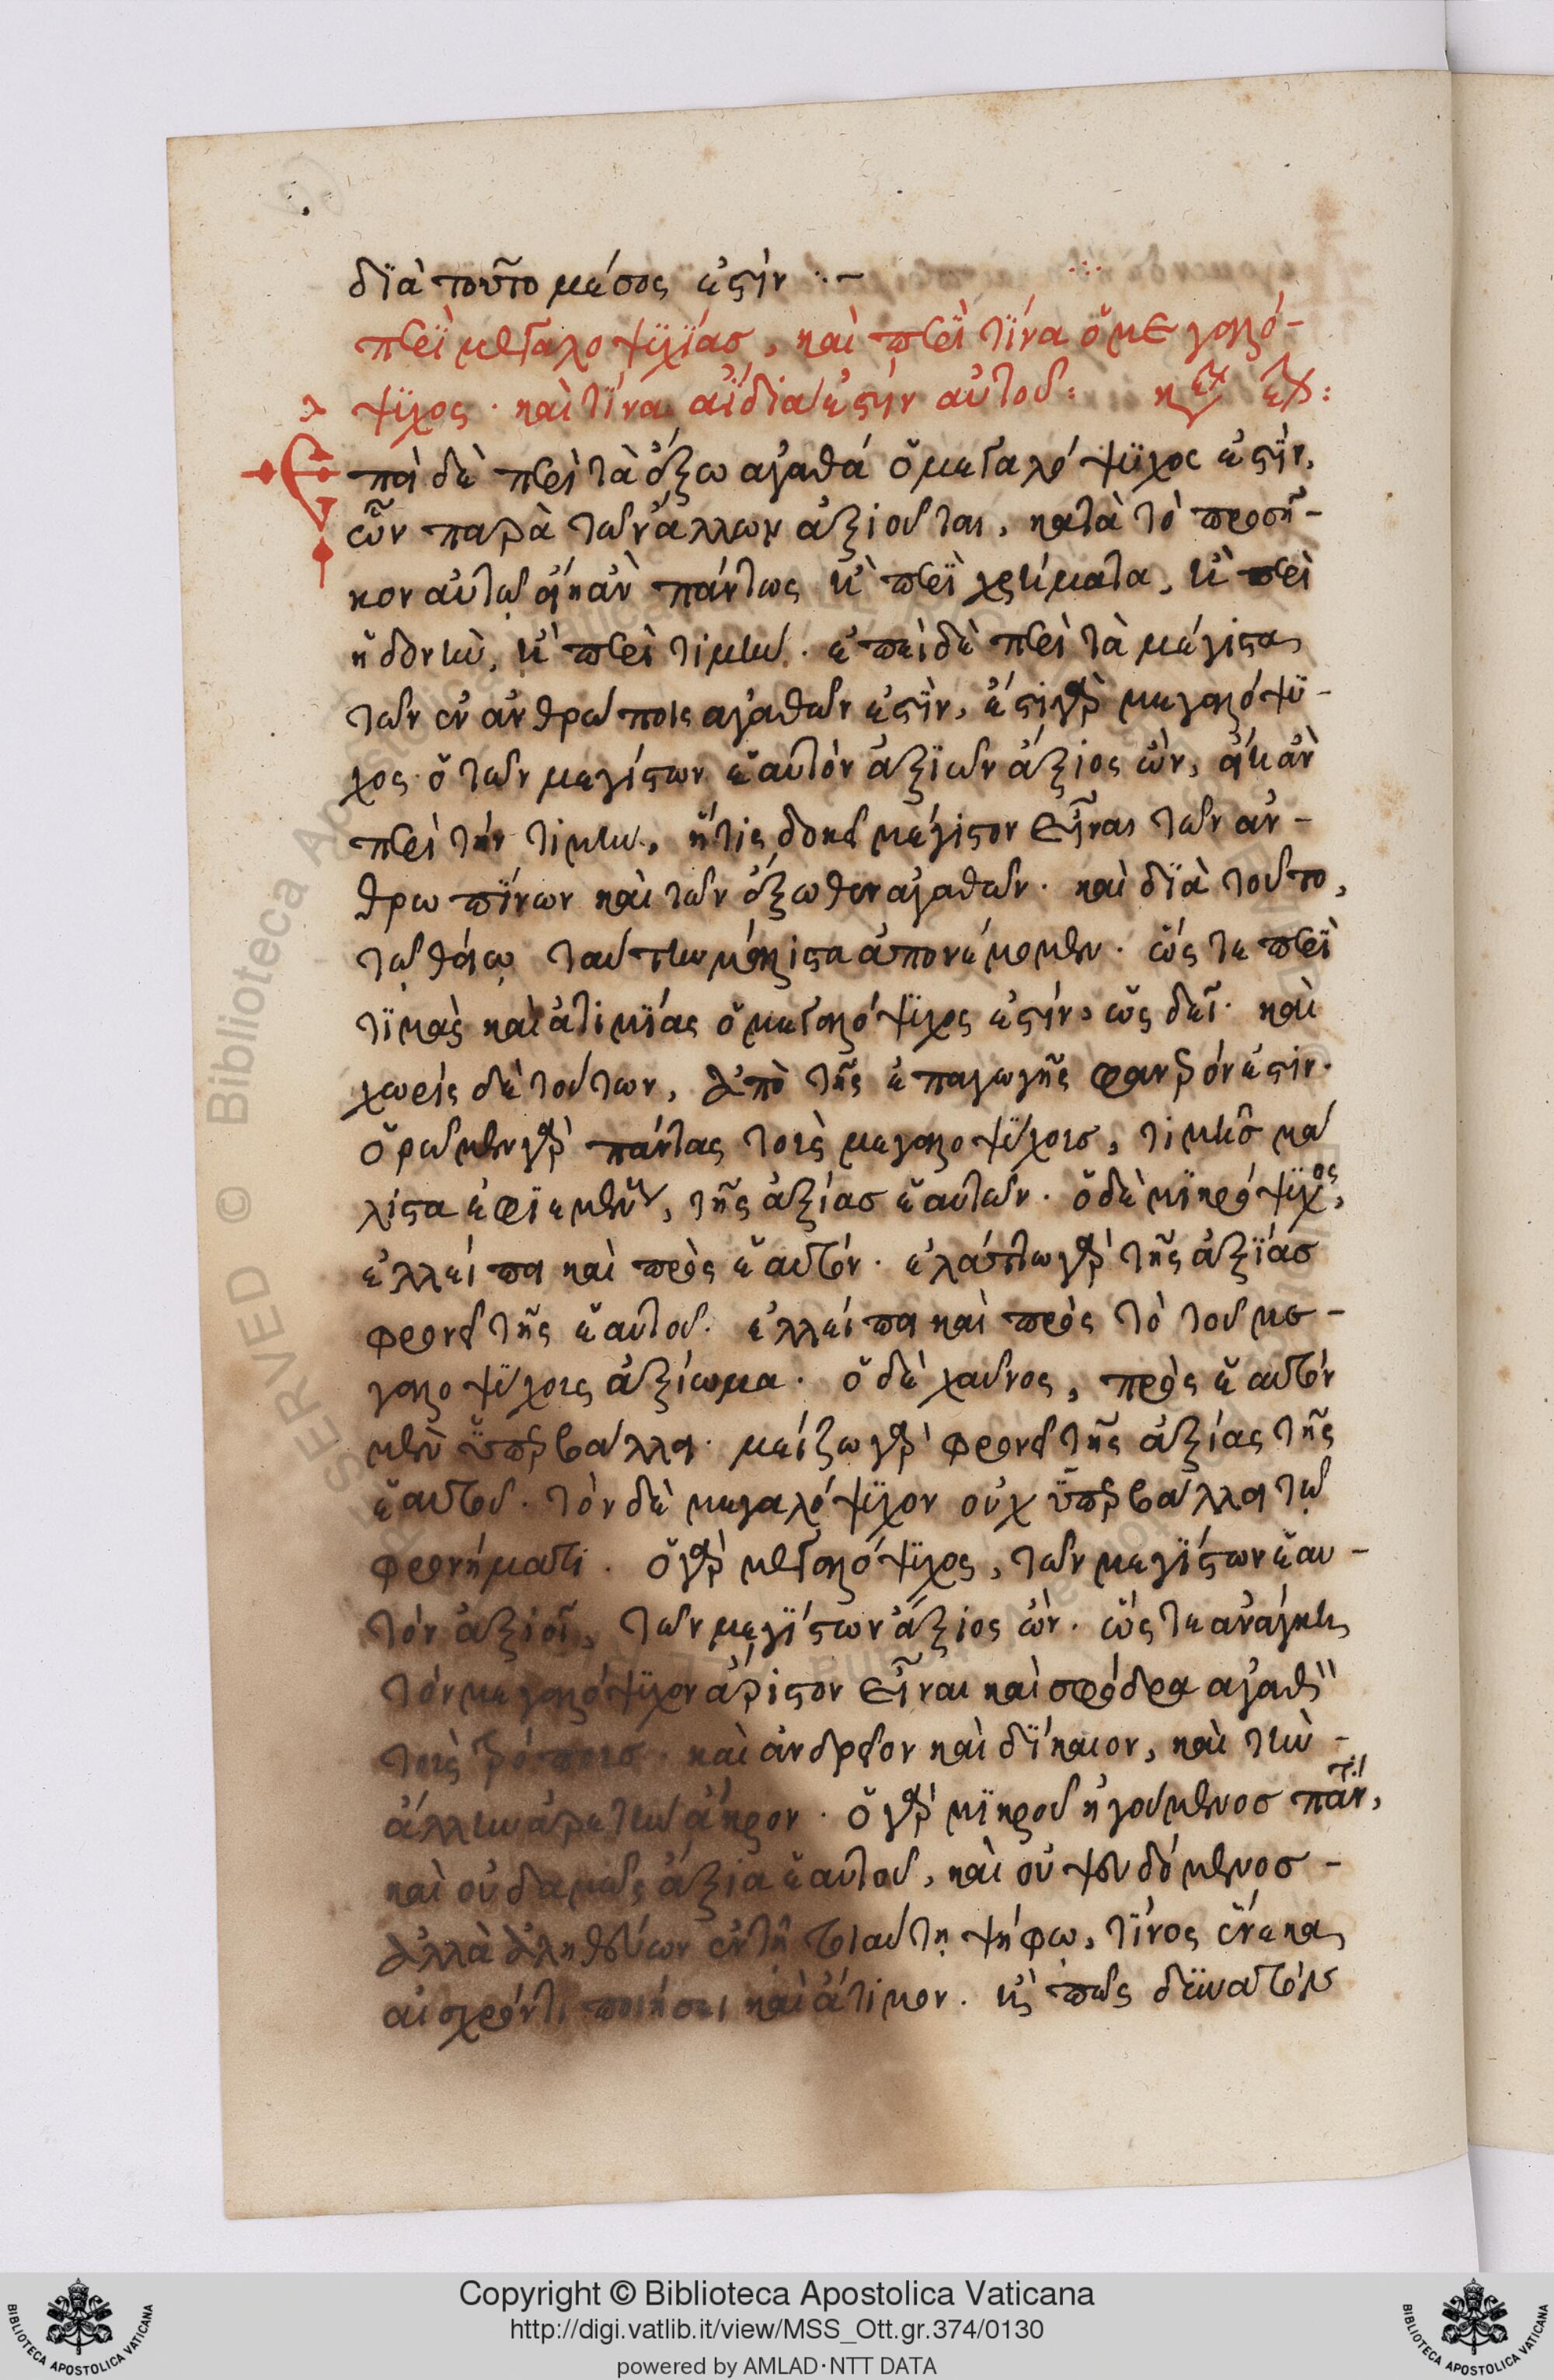 διὰ τοῦτο μέσος ἐστίν :~
περὶ μεγαλοψυχίας, καὶ περὶ τίνα ὁ μεγαλό-
ψυχος· καὶ τίνα ἀΐδια ἐστὶν αὐτοῦ:
Ἐπεὶ δὲ περὶ τὰ ἔξω ἀγαθά ὁ μεγαλόψυχος ἐστὶν,
ὧν παρὰ τῶν ἄλλων ἀξιοῦται, κατὰ τὸ προσῆ-
κον αὐτῷ εἴη ἂν πάντως ἢ περὶ χρήματα, ἢ περὶ
ἡδονὴν, ἢ περὶ τιμήν. ἐπεὶ δὲ περὶ τὰ μέγιστα
τῶν ἐν ἀνθρώποις ἀγαθῶν ἐστὶν, ἔστι γὰρ μεγαλόψυ-
χος ὁ τῶν μεγίστων ἑαυτὸν ἀξιῶν ἄξιος ὢν, εἴη ἂν
περὶ τὴν τιμὴν, ἥτις δοκεῖ μέγιστον εἶναι τῶν ἀν-
θρωπίνων καὶ τῶν ἔξωθεν ἀγαθῶν. καὶ διὰ τοῦτο,
τῷ θείῳ ταύτην μάλιστα ἀπονέμομεν. ὥστε περὶ
τιμὰς καὶ ἀτιμίας ὁ μεγαλόψυχος ἐστὶν, ὡς δεῖ. καὶ
χωρὶς δὲ τούτων, ἀπὸ τῆς ἐπαγωγῆς φανερόν ἐστιν.
ὁρῶμεν γὰρ πάντας τοὺς μεγαλοψύχους, τιμῆς μά
λιστα ἐφιεμένους, τῆς ἀξίας ἑαυτῶν. ὁ δὲ μικρόψυχος,
ἐλλείπει καὶ πρὸς ἑαυτόν. ἐλάττω γὰρ τῆς ἀξίας
φρονεῖ τῆς ἑαυτοῦ. ἐλλείπει καὶ πρὸς τὸ τοῦ με-
γαλοψύχους ἀξίωμα. ὁ δὲ χαῦνος, πρὸς ἑαυτόν
μὲν ὑπερβάλλει. μείζω γὰρ φρονεῖ τῆς ἀξίας τῆς
ἑαυτοῦ. τὸν δὲ μεγαλόψυχον οὐχ ὑπερβάλλει τῷ
φρονήματι. ὁ γὰρ μεγαλόψυχος, τῶν μεγίστων ἑαυ-
τόν ἀξιοῖ, τῶν μεγίστων ἄξιος ὤν. ὥστε ἀνάγκη
τὸν μεγαλόψυχον ἄριστον εἶναι καὶ σφόδρα ἀγαθὸν
τοὺς τρόπους. καὶ ἀνδρεῖον καὶ δίκαιον, καὶ τὴν-
ἄλλην ἀρετὴν ἄκρον. ὁ γὰρ μικροῦ ἡγούμενος πάντα,
καὶ οὐδαμῶς ἄξια ἑαυτοῦ, καὶ οὐ ψευδόμενος-
ἀλλὰ ἀληθεύων ἐν τῇ τοιαύτῃ ψήφω, τίνος ἕνεκα
αἰσχρόν τι ποιήσει καὶ ἄτιμον. ἢ πῶς δυνατόν
Copyright © Biblioteca Apostolica Vaticana
http://digi.vatlib.it/view/MSS_Ott.gr.374/0130
powered by AMLAD·NTT DATA